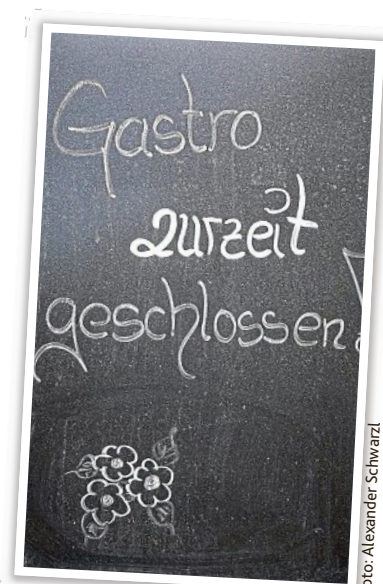 Gastro
zurzeit
geschlossen
oto: Alexander Schwarzl